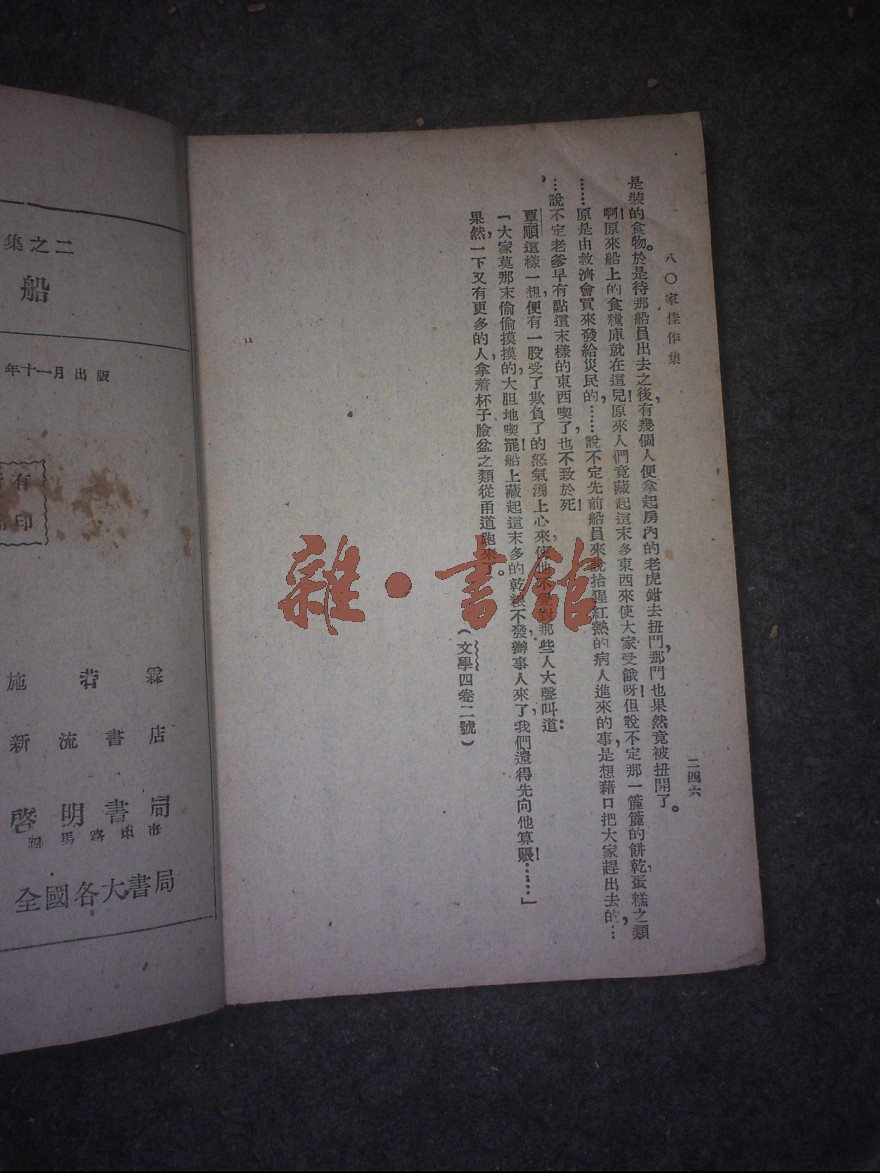 八〇家佳作集
二四六
是裝的食物。於是待那船員出去之後，有幾個人便拿起房內的老虎鉗去扭門，那門也果然竟被扭開了。
啊！原來船上的食糧庫就在這兒！原來人們竟藏起這末多東西來使大家受餓呀！但說不定那一籮籮的餅乾，蛋糕之類，
……原是由救濟會買來發給災民的，……說不定先前船員來說抬猩紅熱的病人進來的事，是想藉口把大家趕出去的，…
…說不定老爹早有點這末樣的東西喫了，也不致於死！
覃順這樣一想，便有一股受了欺負了的怒氣湧上心來，使他那些人大聲叫道：
「大家莫那末偷偷摸摸的，大胆地喫罷！船上藏起這末多的乾糧不發，辦事人來了，我們還得先向他算賬！……」
果然，一下又有更多的人，拿着杯子臉盆之類從甬道跑來了。
（文學四卷二號）
集之二
船
年十一月出版
有
印
施若霖
新流書店
啓明書局
四馬路
全國各大書局
雜·書館